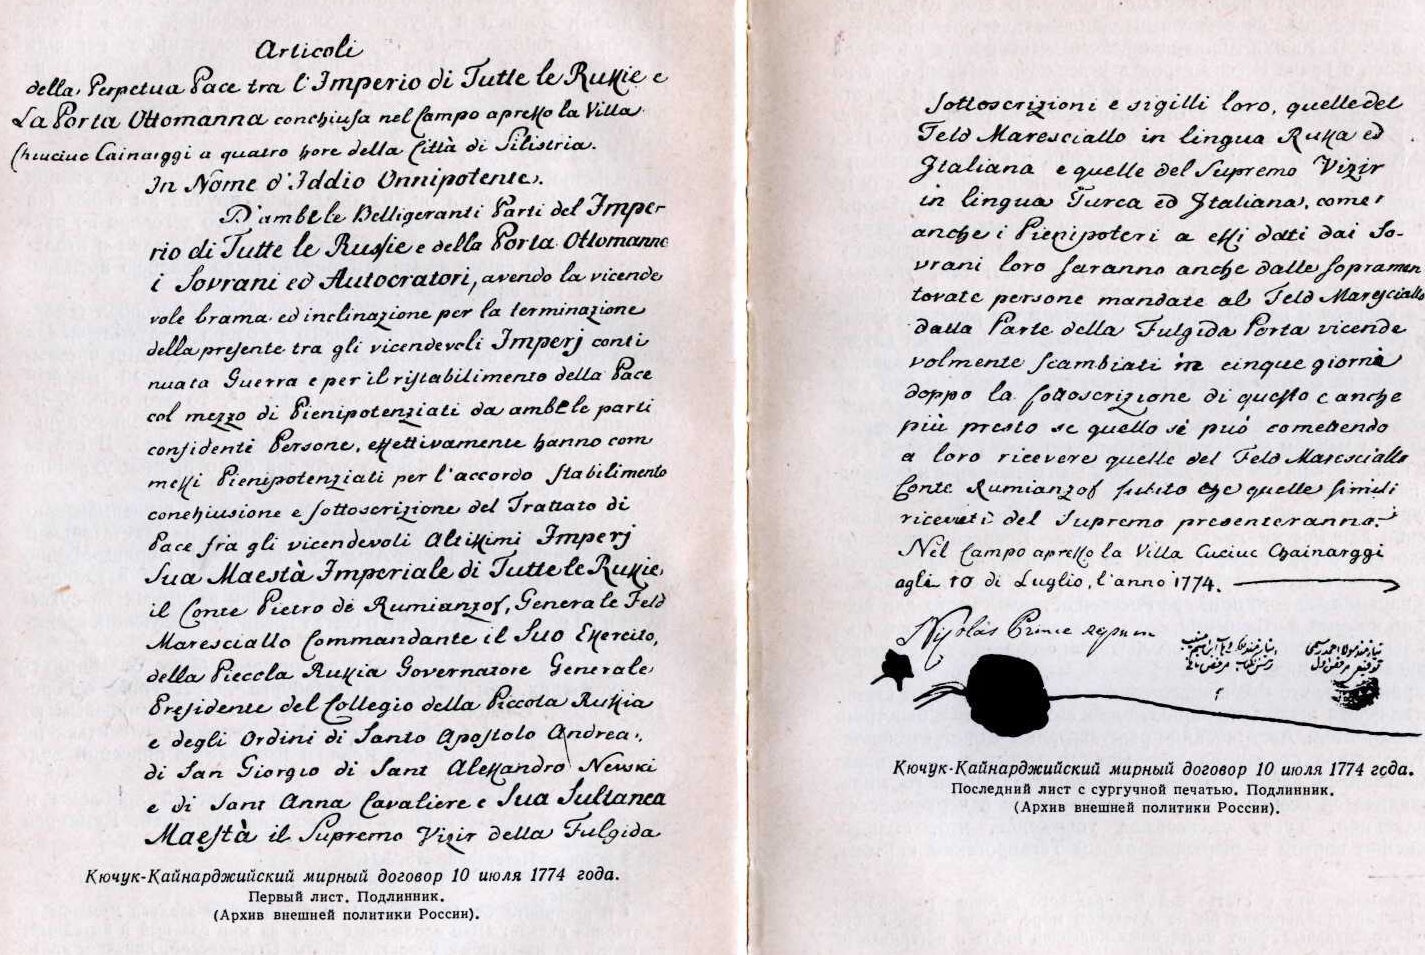 Articoli
della Perpetua Pace tra l'Imperio di Tutte le Russie e
La Porta Ottomanna conchiusa nel Campo apresso la Villa
Chiuciuc Cainarggi a quatro hore della Città di Silistria.
In Nome d'Iddio Onnipotente.
D'ambe le Belligeranti Parti del Impe-
rio di Tutte le Russie e della Porta Ottomanna
i Sovrani ed Autocratori, avendo la vicende
vole brama ed inclinazione per la terminazione
della presente tra gli vicendevoli Imperj conti
nuata Guerra e per il ristabilimento della Pace
col mezzo di Plenipotenziati da ambe le parti
confidenti Persone, essettivamente hanno com
messi Plenipotenziati per l'accordo stabilimento
conchiusione e sottoscrizione del Trattato di
Pace fra gli vicendevoli Altissimi Imperj
Sua Maestà Imperiale di Tutte le Russie
il Conte Pietro de Rumianzof, Generale Feld
Maresciallo Commandante il Suo Essercito,
della Piccola Russia Governatore Generale
Presidente del Collegio della Piccola Russia
e degli Ordini di Santo Apostolo Andrea,
di San Giorgio di Sant Alessandro Newski
e di Sant Anna Cavaliere e Sua Sultanea
Maestà il Supremo Vizir della Fulgida
Кючук-Кайнарджийский мирный договор 10 июля 1774 года.
Первый лист. Подлинник.
(Архив внешней политики России).
sottoscrizioni e sigilli loro, quelle del
Feld Maresciallo in lingua Russa ed
Italiana e quelle del Supremo Vizir
in lingua Turca ed Italiana, come
anche i Plenipoteri a essi dati dai So-
vrani loro saranno anche dalle sopramen
tovate persone mandate al Feld Maresciallo
dalla Parte della Fulgida Porta vicende
volmente scambiati in cinque giorni
doppo la sottoscrizione di questo e anche
più presto se quello sè può comettendo
a loro ricevere quelle del Feld Maresciallo
Conte Rumianzof subito che quelle simili
ricevuti del Supremo presenteranno.
Nel Campo apresso la Villa Cuciuc Chainarggi
agli 10 di Luglio, l'anno 1774.
Nicolas Prince Repnin
Кючук-Кайнарджийский мирный договор 10 июля 1774 года.
Последний лист с сургучной печатью. Подлинник.
(Архив внешней политики России).